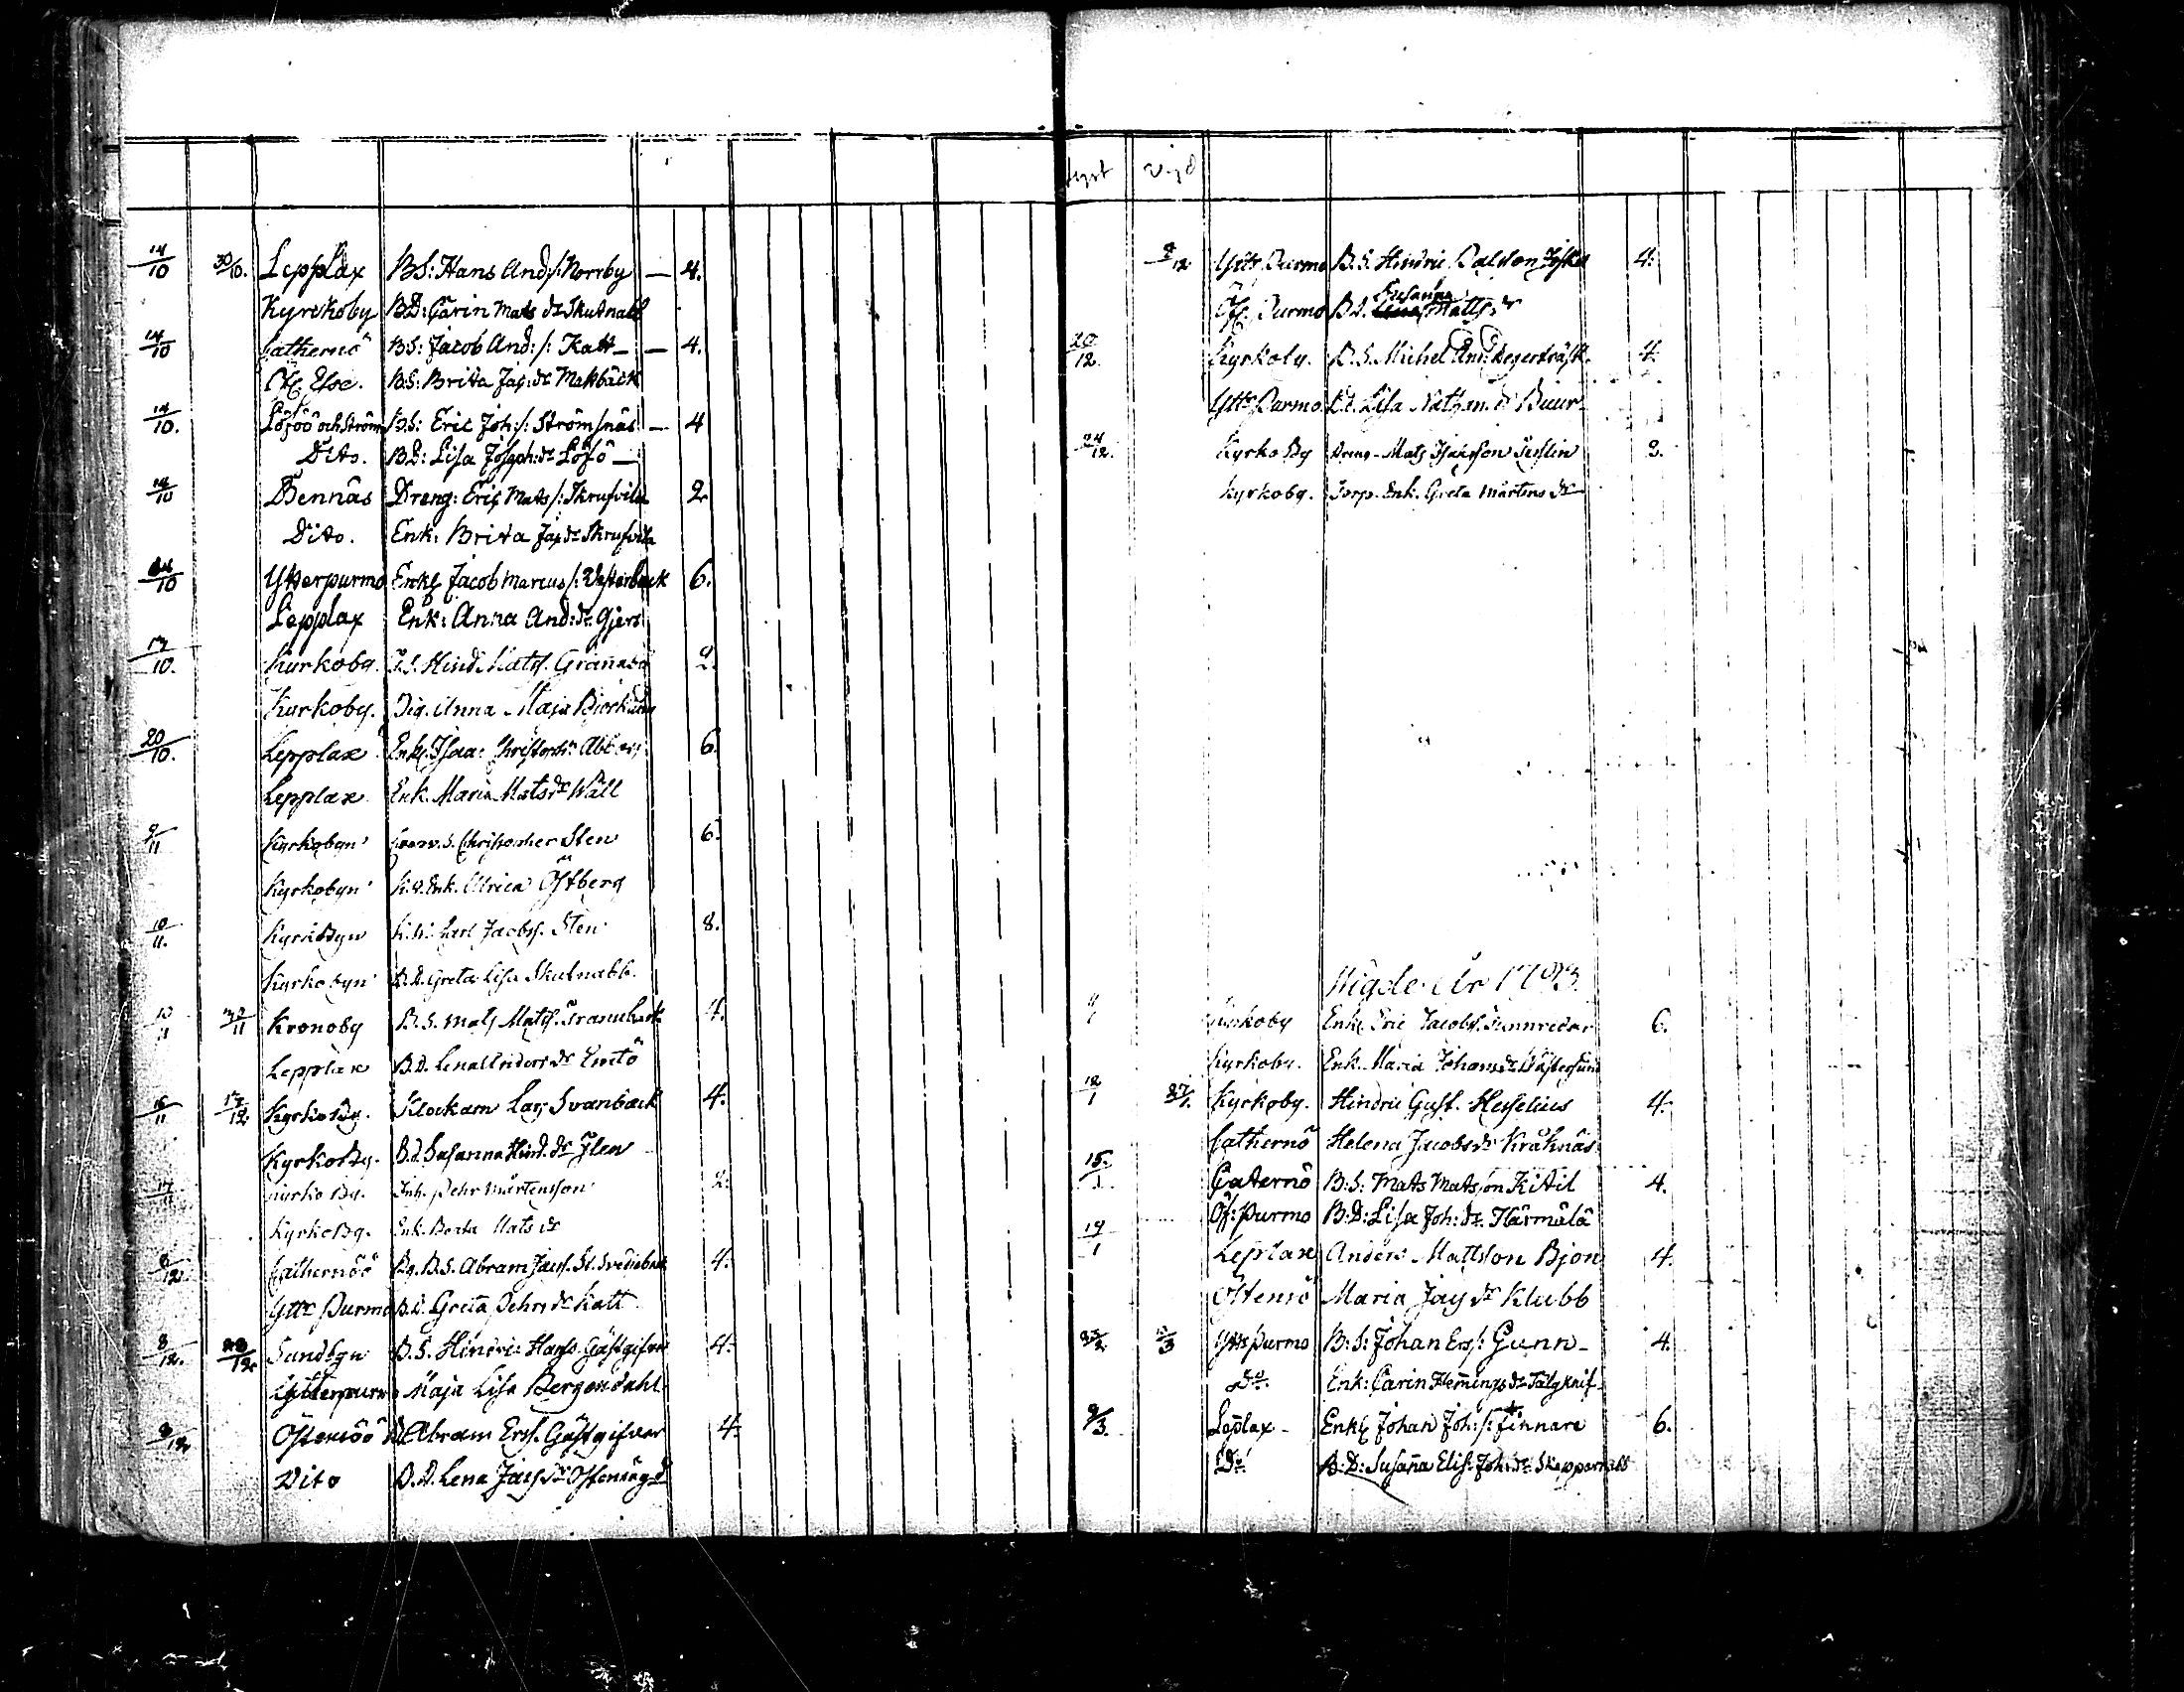 14/10 30/10. Lepplax BS: Hans And:/: Norrby — 4.
Kyrckoby BD: Carin Mats dr Skutnabb
14/10 Cathernö BS: Jacob And:/: Katt — 4.
Öf. Esse. BS: Brita Jac: dr Mattbäck
14/10. Löföö och Ström BS: Eric Joh:/: Strömsnäs — 4
Dito. BD: Lisa Joseph: dr Löfö —
14/10 Bennäs Dreng: Eric Mats/: Skrufvila 2
Dito. Enk: Brita Jac dr Skrufvila
10 Ytterpurmo Enkl Jacob Marcus/: Westerback 6.
Lepplax Enk: Anna And: dr Gjers
17/10. Kyrkoby. Hind. Matss. Granabo 2.
Kyrkoby. Pig. Anna Maja
20/10. Lepplax Enkl. Isaac Abbors 6.
Lepplax Enk. Maria Mats dr Wäll
9/11 Kyrkobyn Christopher Sten 6.
Kyrkobyn Enk. Ulrica Östberg
10/11. Kyrkobyn Carl Jacobss. Sten 8.
Kyrkobyn B.D. Greta Lisa Skutnabb.
10/11 30/11 Kronoby B.S. Mats Matss. Granuback 4.
Lepplax B.D. Lena Anders dr Emtö
16/11 17/12 Kyrko By. Klockarn Lars Svanbäck 4.
Kyrko By. B.d. Susanna Hind. dr Sten
17/11 Kyrko By. Inh. Pehr Mårtensson 2.
Kyrko By. Enk. Beata Mats dr
8/12. Cathernöö B.S. Abram Jacss. 4.
Yttr Purmo B.d. Greta Pehrs dr Katt
8/12. 28/12 Sundbyn B.S. Hindric Hanss. Gästgifvar 4.
Ytterpurmo Maja Lisa Bergendahl
9/12 Östensöö Abram Ers. Gästgifvar 4.
Dito B.D. Lena Jacss dr
lyst vigd
12 Yttr Purmo B.S. Hindric 4.
Öf. Purmo B.D. Susanna Matts dr
20/12. Kyrkoby. B.S. Michel And. Degerträsk. 4.
Yttr Purmo. B.d. Lisa Mats dr Buur
24/12. Kyrko By Dreng Mats Isaksson 2.
Kyrkoby. Torp. Enk. Greta Mårtens dr
Wigde År 1793.
Kyrkoby Enkl Eric Jacobss. 6.
Kyrkoby. Enk. Maria Johans dr Wästersund
12/1 27/1. Kyrkoby. Hindric Gust. Hesselius 4.
Cathernö Helena Jacobs dr Kråknäs
15/1 Caternö B:S: Mats Matsson Kitil 4.
Öf: Purmo B:D: Lisa Joh: dr Härmälä
19/1 Leplax Anders Mattsson Bjon 4.
Östensö Maria Jacs dr Klubb
2 3 Yttr purmo B:S: Johan Ers/: Gunn 4.
Do. Enk: Carin Flemings dr Tälgknif
9/3. Leplax Enkl Johan Joh:/: Finnare 6.
Do B:D: Susanna Elis. Joh: dr Skepparnabb